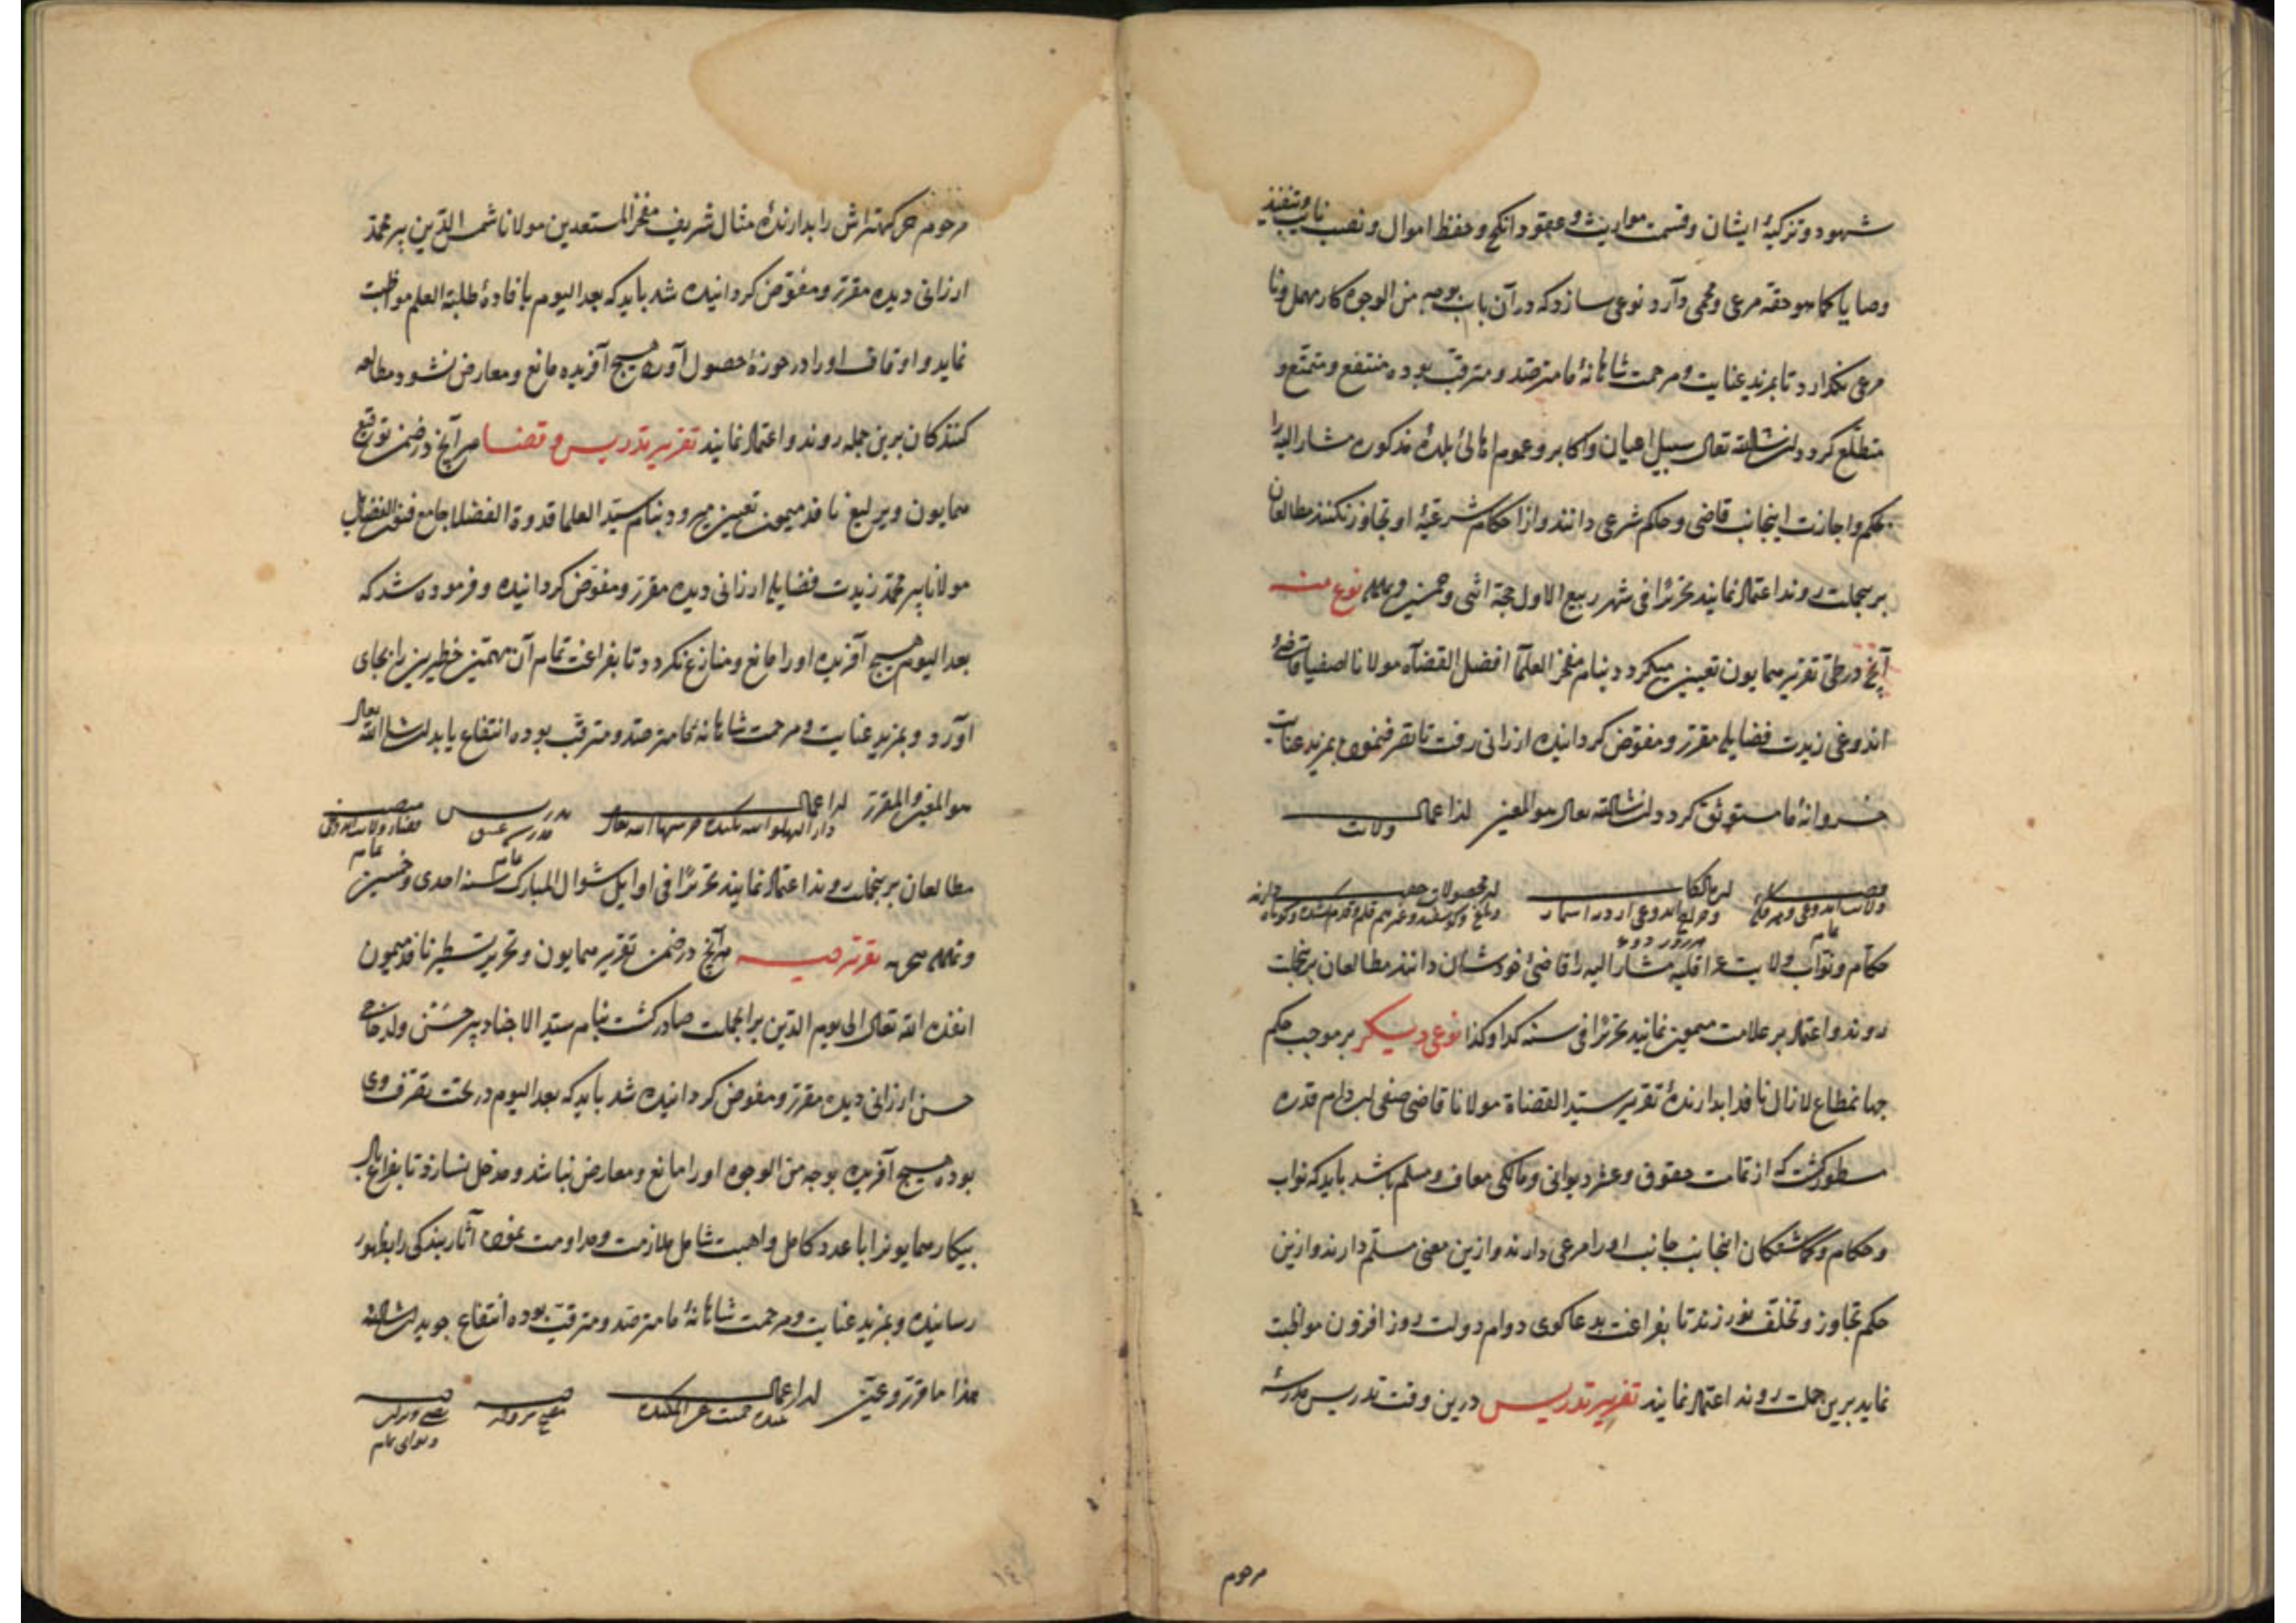 شهود و تزکیهٔ ایشان و قسمت مواریث و عقود انکحه و حفظ اموال و نصب نایب و تنفیذ
وصایا کما هو حقه مرعی و محمی دارد نوعی سازد که در آن باب بوجه من الوجوه کار مهمل و نا
مرعی نگذارد تا بمزید عنایت و مرحمت شاهانهٔ ما مترصد و مترقب بوده منتفع و متمتع و
متطلع کردد ان شاالله تعالی سبیل اعیان و اکابر و عموم اهالی بلدهٔ مذکوره مشار الیه را
بحکم و اجازت اینجانب قاضی و حکم شرعی دانند و از احکام شرعیهٔ او تجاوز نکنند مطالعان
برین جملت روند اعتماد نمایند تحریرا فی شهر ربیع الاول حجة اثنی و خمسین نوع منه
آنچ در طی تقریر همایون تعیین میکردد بنام مفخر العلمآ افضل القضاه مولانا صفیا قاضی
زیدت فضایله مقرر و مفوض کردانیده ارزانی رفت تا بمزید عنایت
خسروانهٔ ما مستوثق کردد ان شاالله تعالی هو المعین لدا عمال
ولات
حکام و نواب ولایت مشار الیه را قاضی خودشان دانند مطالعان برینجملت
روند و اعتماد بر علامت میمون نمایند تحریرا فی سنه کذا و کذا نوعی دیکر بر موجب حکم
جهانمطاع لا زال نافذا بدارندهٔ تقریر سید القضاة مولانا قاضی صفی دام قدره
مسطور کشت که از تمامت حقوق و عشر دیوانی و مالکی معاف و مسلم باشد باید که نواب
و حکام و کماشتکان اینجانب جانب او را مرعی دارند و ازین معنی مسلم دارند و ازین
حکم تجاوز و تخلف نورزند تا بفراغت بدعاکوی دوام دولت روز افزون مواظبت
نماید برین جملت روند اعتماد نمایند تقریر تدریس درین وقت تدریس مدرسهٔ
مرحوم
مرحوم را بدارندهٔ مثال شریف مفخر المستعدین مولانا شمس الدین پیر محمد
ارزانی دیده مقرر و مفوض کردانیده شد باید که بعد الیوم بافادهٔ طلبة العلم مواظبت
نماید و اوقاف او را در حوزهٔ حصول آورد هیچ آفریده مانع و معارض نشود مطالعه
کنندکان برین جمله روند و اعتماد نمایند تقریر تدریس و قضا آنچ در ضمن توقیع
همایون و یرلیغ نافذ میمون تعیین میرود بنام سید العلما قدوة الفضلا جامع فنون الفضایل
مولانا پیر محمد زیدت فضایله ارزانی دیده مقرر و مفوض کردانیده و فرموده شد که
بعد الیوم هیچ آفریده او را مانع و منازع نکردد تا بفراغت تمام آن مهمین خطیرین را بجای
آورد و بمزید عنایت و مرحمت شاهانهٔ ما مترصد و مترقب بوده انتفاع یابد ان شاء الله تعالی
هو المعین و المقرر لدا عمال
مطالعان برینجملت روند اعتماد نمایند تحریرا فی اوایل شوال المبارک سنه احدی و خمسین
آنچ در ضمن تقریر همایون و تحریر تسطیر نافذ میمون
انفذه الله تعالی الی یوم الدین برینجملت صادر کشت بنام سید الاجناد پیر حسن ولد حاجی
حسن ارزانی دیده مقرر و مفوض کردانیده شد باید که بعد الیوم در تحت تصرف وی
بوده هیچ آفریده بوجه من الوجوه او را مانع و معارض نباشد و مدخل نسازد تا بفراغ بال
بیکار همایونرا با عدد کامل و اهبت شامل ملازمت و مداومت نموده آثار بندکی را بظهور
رسانیده و بمزید عنایت و مرحمت شاهانهٔ ما مترصد و مترقب بوده انتفاع جوید ان شاالله
هذا ما قرر و عین لدا عمال